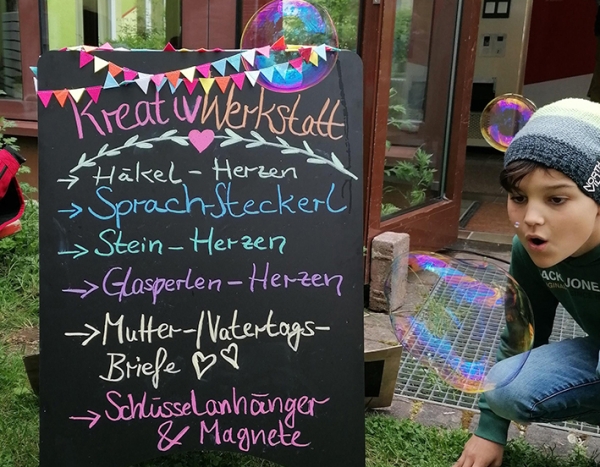 KreativWerkstatt
→ Häkel-Herzen
→ Sprach-Steckerl
→ Stein-Herzen
→ Glasperlen-Herzen
→ Mutter-/Vatertags-
Briefe ♡♡
→ Schlüsselanhänger
& Magnete
JACK JONES